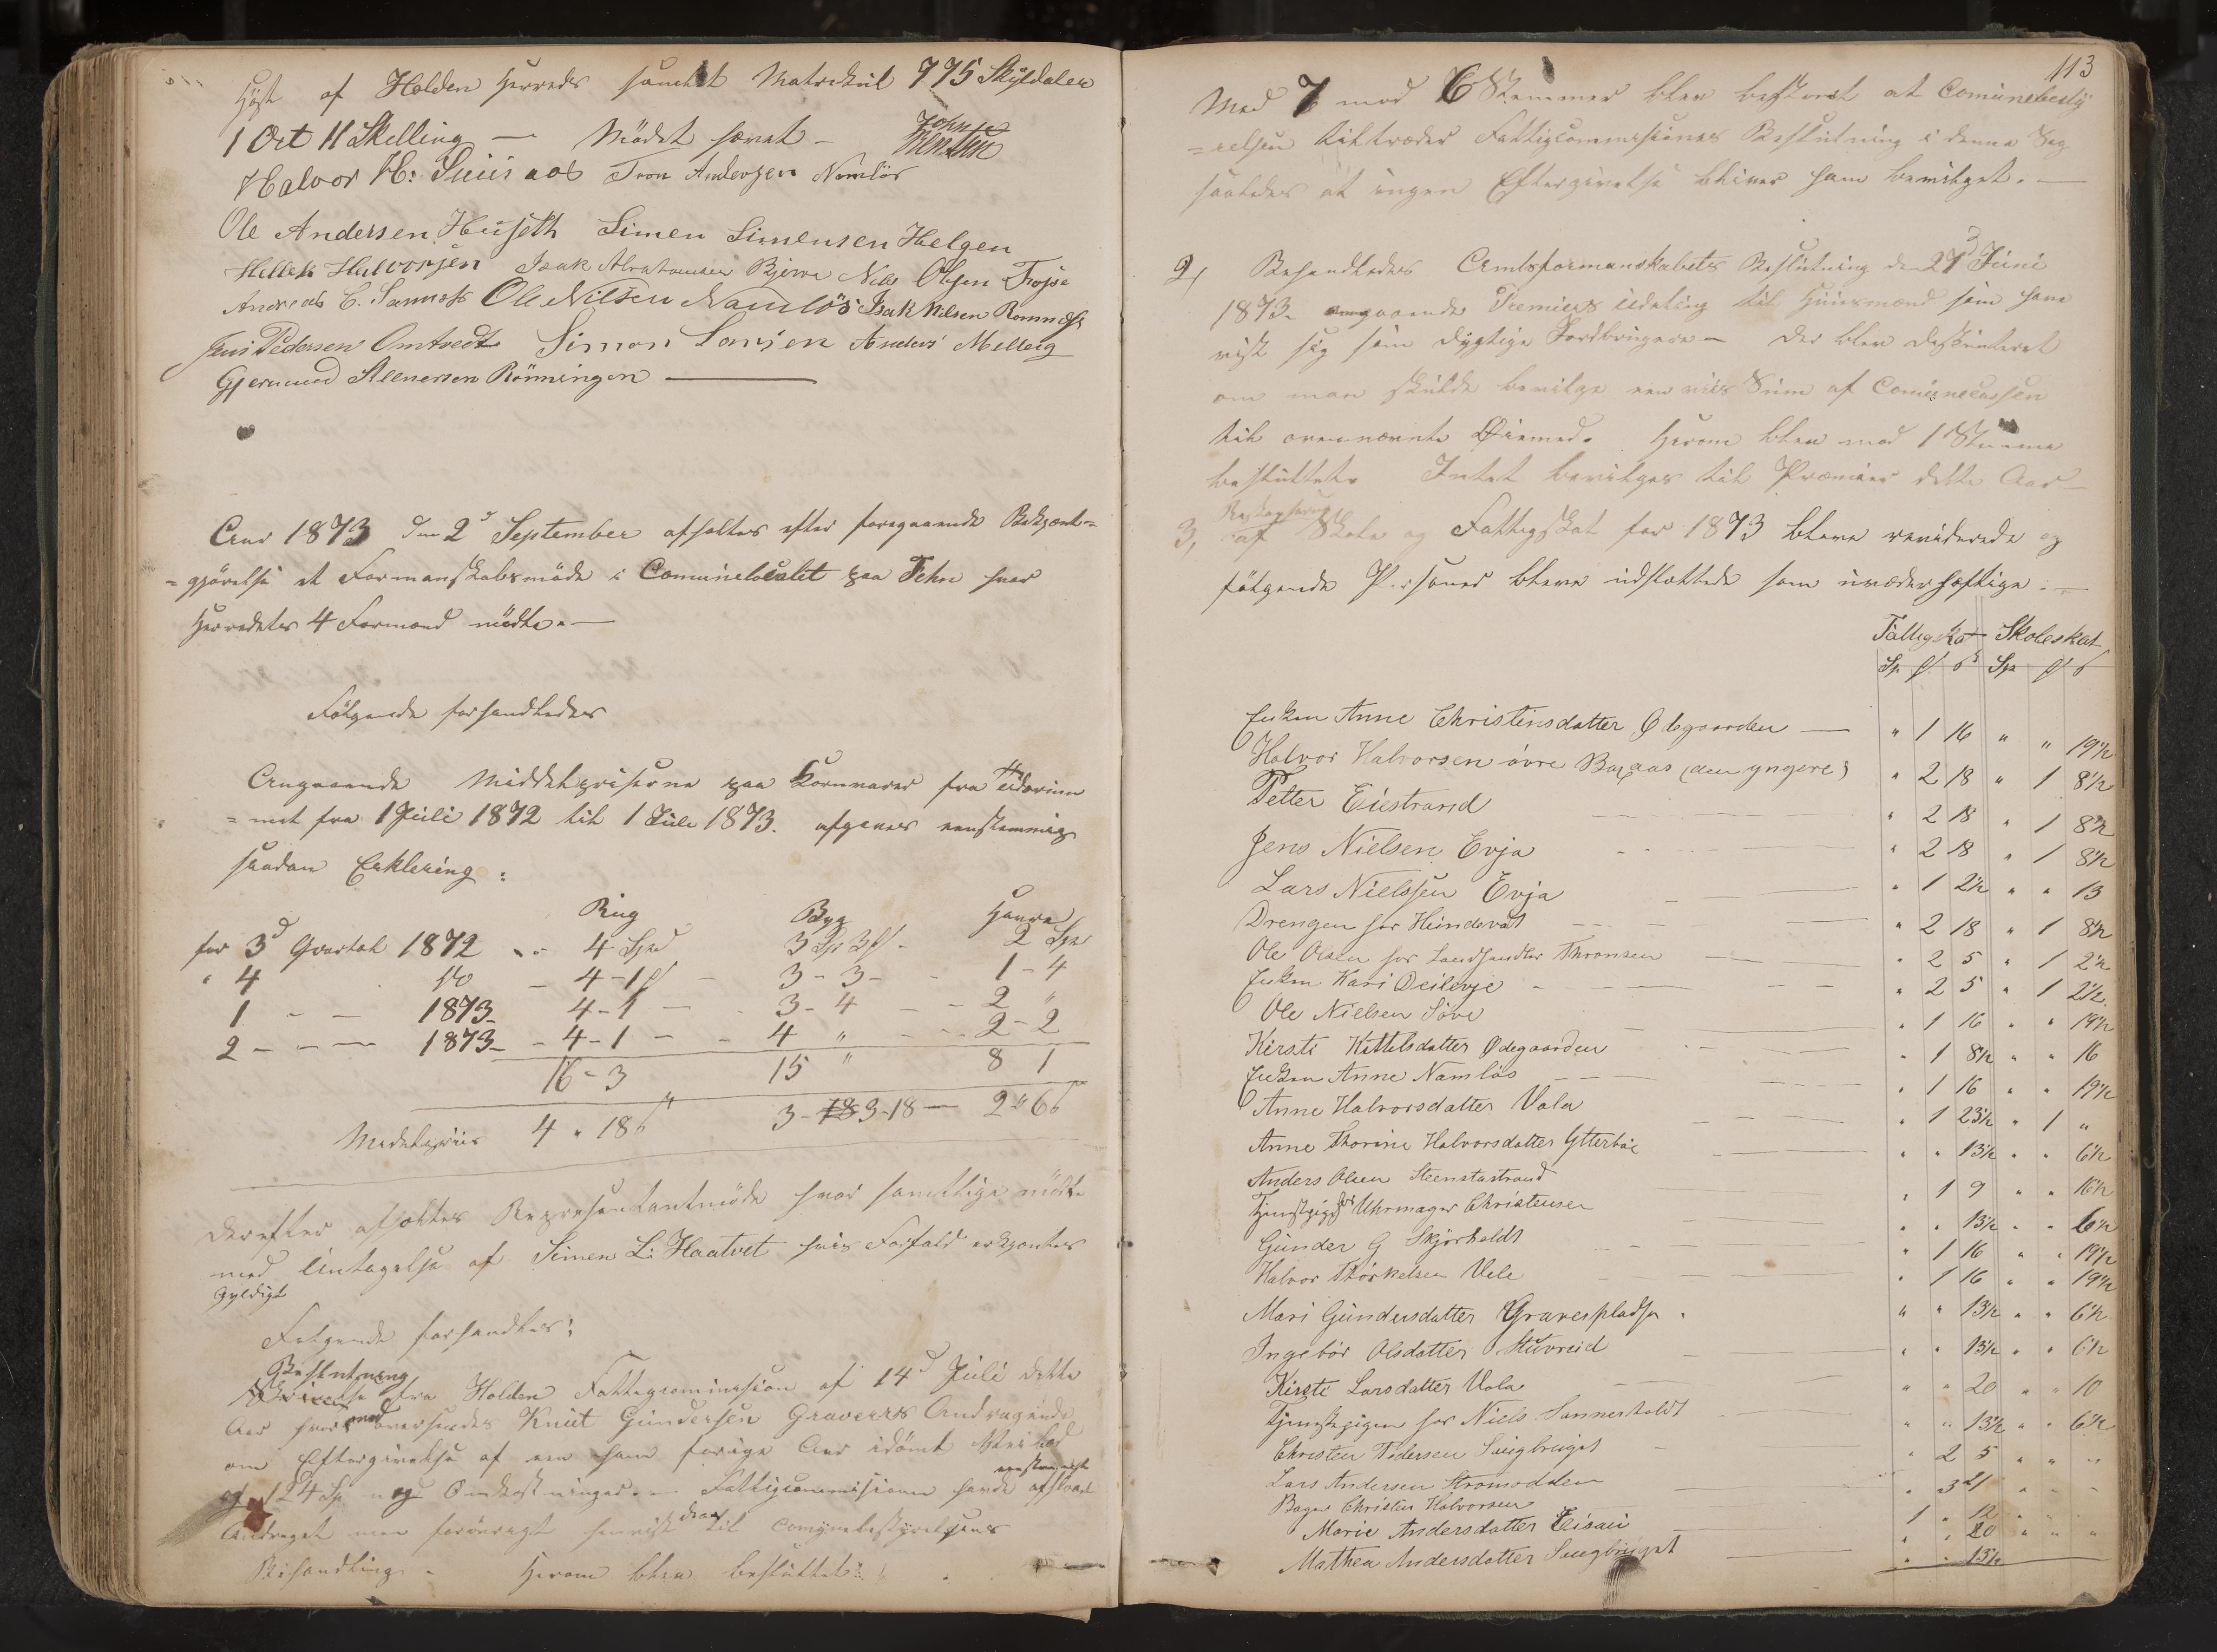 Høst af Holden Herreds samlet Matrikul 775 Skyldaler
1 Ort 11 Skelling — Mödet hævet – John
Halvor H: Tron Andersen Namlös
Ole Andersen Huseth Simen Simensen Helgen
Hellek Halvorsen Isak Abrahamsen Bjerva Nils Olsen
Andreas C. Ole Nilsen Namlös Isak Nilsen
Jens Pedersen Omtvedt Simon Anders Melleig
Gjermund Steenersen Rönningen —
Aar 1873 den 2d September afholtes efter foregaaende Bekjent=
=gjörelse et Formanskabsmöde i Comunelocalet paa Fehn hvor
Herredets 4 Formænd mödte. —
Fölgende forhandledes
Angaaende Middelpriserne paa Kornvarer fra
= met fra 1 Juli 1872 til 1 Juli 1873. afgaves eenstemmig
saadan Erklering :
Rug Byg Havre
for 3d Qvartal 1872 4 Spd 3 Spd 3 2 Spd
" 4 do – 4-1 – 3-3- 1-4
1 - — 1873 4-1 — 3-4 – 2 "
2 - - — 1873 - 4-1 - - 4 " - - 2-2
16-3 15 " 8 1
Medelpriis 4 " 18 3-3-18 — 2 " 6
Derefter afholtes Representantmöde hvor samtlige mödte
med Untagelse af Simen L: Haatvet hvis Forfald erkjentes
Gyldigt
Følgende forhandles:
Beslutning
fra Holden Fattigcommission af 14d Juli dette
Aar hvormed oversendes Knut Gundersen Andragende
om Eftergivelse af en ham forrige Aar idömt
eenstemmigt
af 124 Sp og Omkostninger. — Fattigcommissionen havde afslaaet
Andraget men henvist til comunebestyrelsens
Behandling. Herom blev besluttet:
113
Med 7 mod 6 Stemmer blev bestemt at Comunebesty
=relsen tiltræder Fattigcommissionens Beslutning i denne Sag
saaledes at ingen Eftergivelse bliver ham bevilget. —
2, Behandledes Amtsformanskabets Beslutning den Juni
1873. angaaende Premiers Udeling til Huusmænd som have
vist sig som dygtige Jordbrugere — der blev deskuteret
om man skulde bevilge een vis Sum af Comunecassen
til ovennevnte Øiemed. Herom blev med 1 Stemme
besluttet. Intet bevilges til Præmier dette Aar —
3, af Skole og Fattigskat for 1873 bleve reviderede og
fölgende Personer bleve udslettede som uvederheftige. —
Fattigskat Skoleskat
Sp Spd
Enken Anne Christensdatter Ødegaarden — " 1 16 " " 19½
Halvor Halvorsen övre Baxaas (den yngere) " 2 18 " 1 8½
Petter Eiestrand " 2 18 " 1 8½
Jens Nielsen Evja " 2 18 " 1 8½
Lars Nielssen Evja " 1 2½ " " 13
Drengen hos Heindevat " 2 18 " 1 8½
Ole Olsen hos Landhandler Thronsen " 2 5 " 1 2½
Enken Kari " 2 5 " 1 2½
Ole Nielsen Söve " 1 16 " " 19½
Kirsti Kittilsdatter Ødegaarden " 1 8½ " " 16
Enken Anne Namlös " 1 16 " " 19½
Anne Halvorsdatter Vala " 1 23½ " 1 "
Anne Thorine Halvorsdatter Ytterböe " " 13½ " " 6½
Anders Olsen Steenstastrand " 1 9 " " 16½
Tjenstpige hos Uhrmager Christensen " " 13½ " " 6½
Gunder G Skjörholdt " 1 16 " " 19½
Halvor Thorkelsen Vele " 1 16 " " 19½
Mari Gundersdatter Gravespladsen " " 13½ " " 6½
Ingebör Olsdatter Stuvreid " " 13½ " " 6½
Kirsti Larsdatter Vola " " 20 " " 10
Tjenestepigen hos Niels Sannerholdt " " 13½ " " 6½
Christen Pedersen " 2 5 " " "
Lars Andersen Stromodden " 3 21 " " "
Bager Christen Halvorsen 1 " 12
Marie Andersdatter " " 20 " " "
Mathea Andersdatter " " 13½